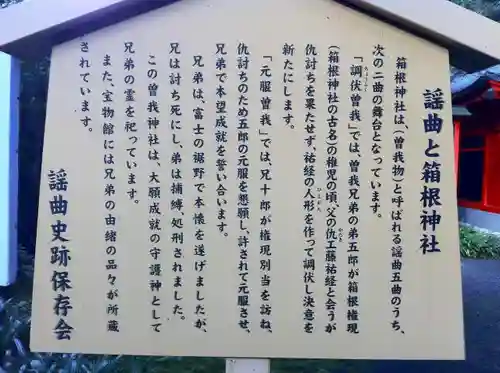 謡曲と箱根神社
箱根神社は、(曽我物)と呼ばれる謡曲五曲のうち、
次の二曲の舞台となっています。
「調伏曽我」では、曽我兄弟の弟五郎が箱根権現
(箱根神社の古名)の稚児の頃、父の仇工藤祐経と会うが
仇討ちを果たせず、祐経の人形を作って調伏し決意を
新たにします。
「元服曽我」では、兄十郎が権現別当を訪ね、
仇討ちのため五郎の元服を懇願し、許されて元服させ、
兄弟で本望成就を誓い合います。
兄弟は、富士の裾野で本懐を遂げましたが、
兄は討ち死にし、弟は捕縛処刑されました。
この曽我神社は、大願成就の守護神として
兄弟の霊を祀っています。
また、宝物館には兄弟の由緒の品々が所蔵
されています。
謡曲史跡保存会